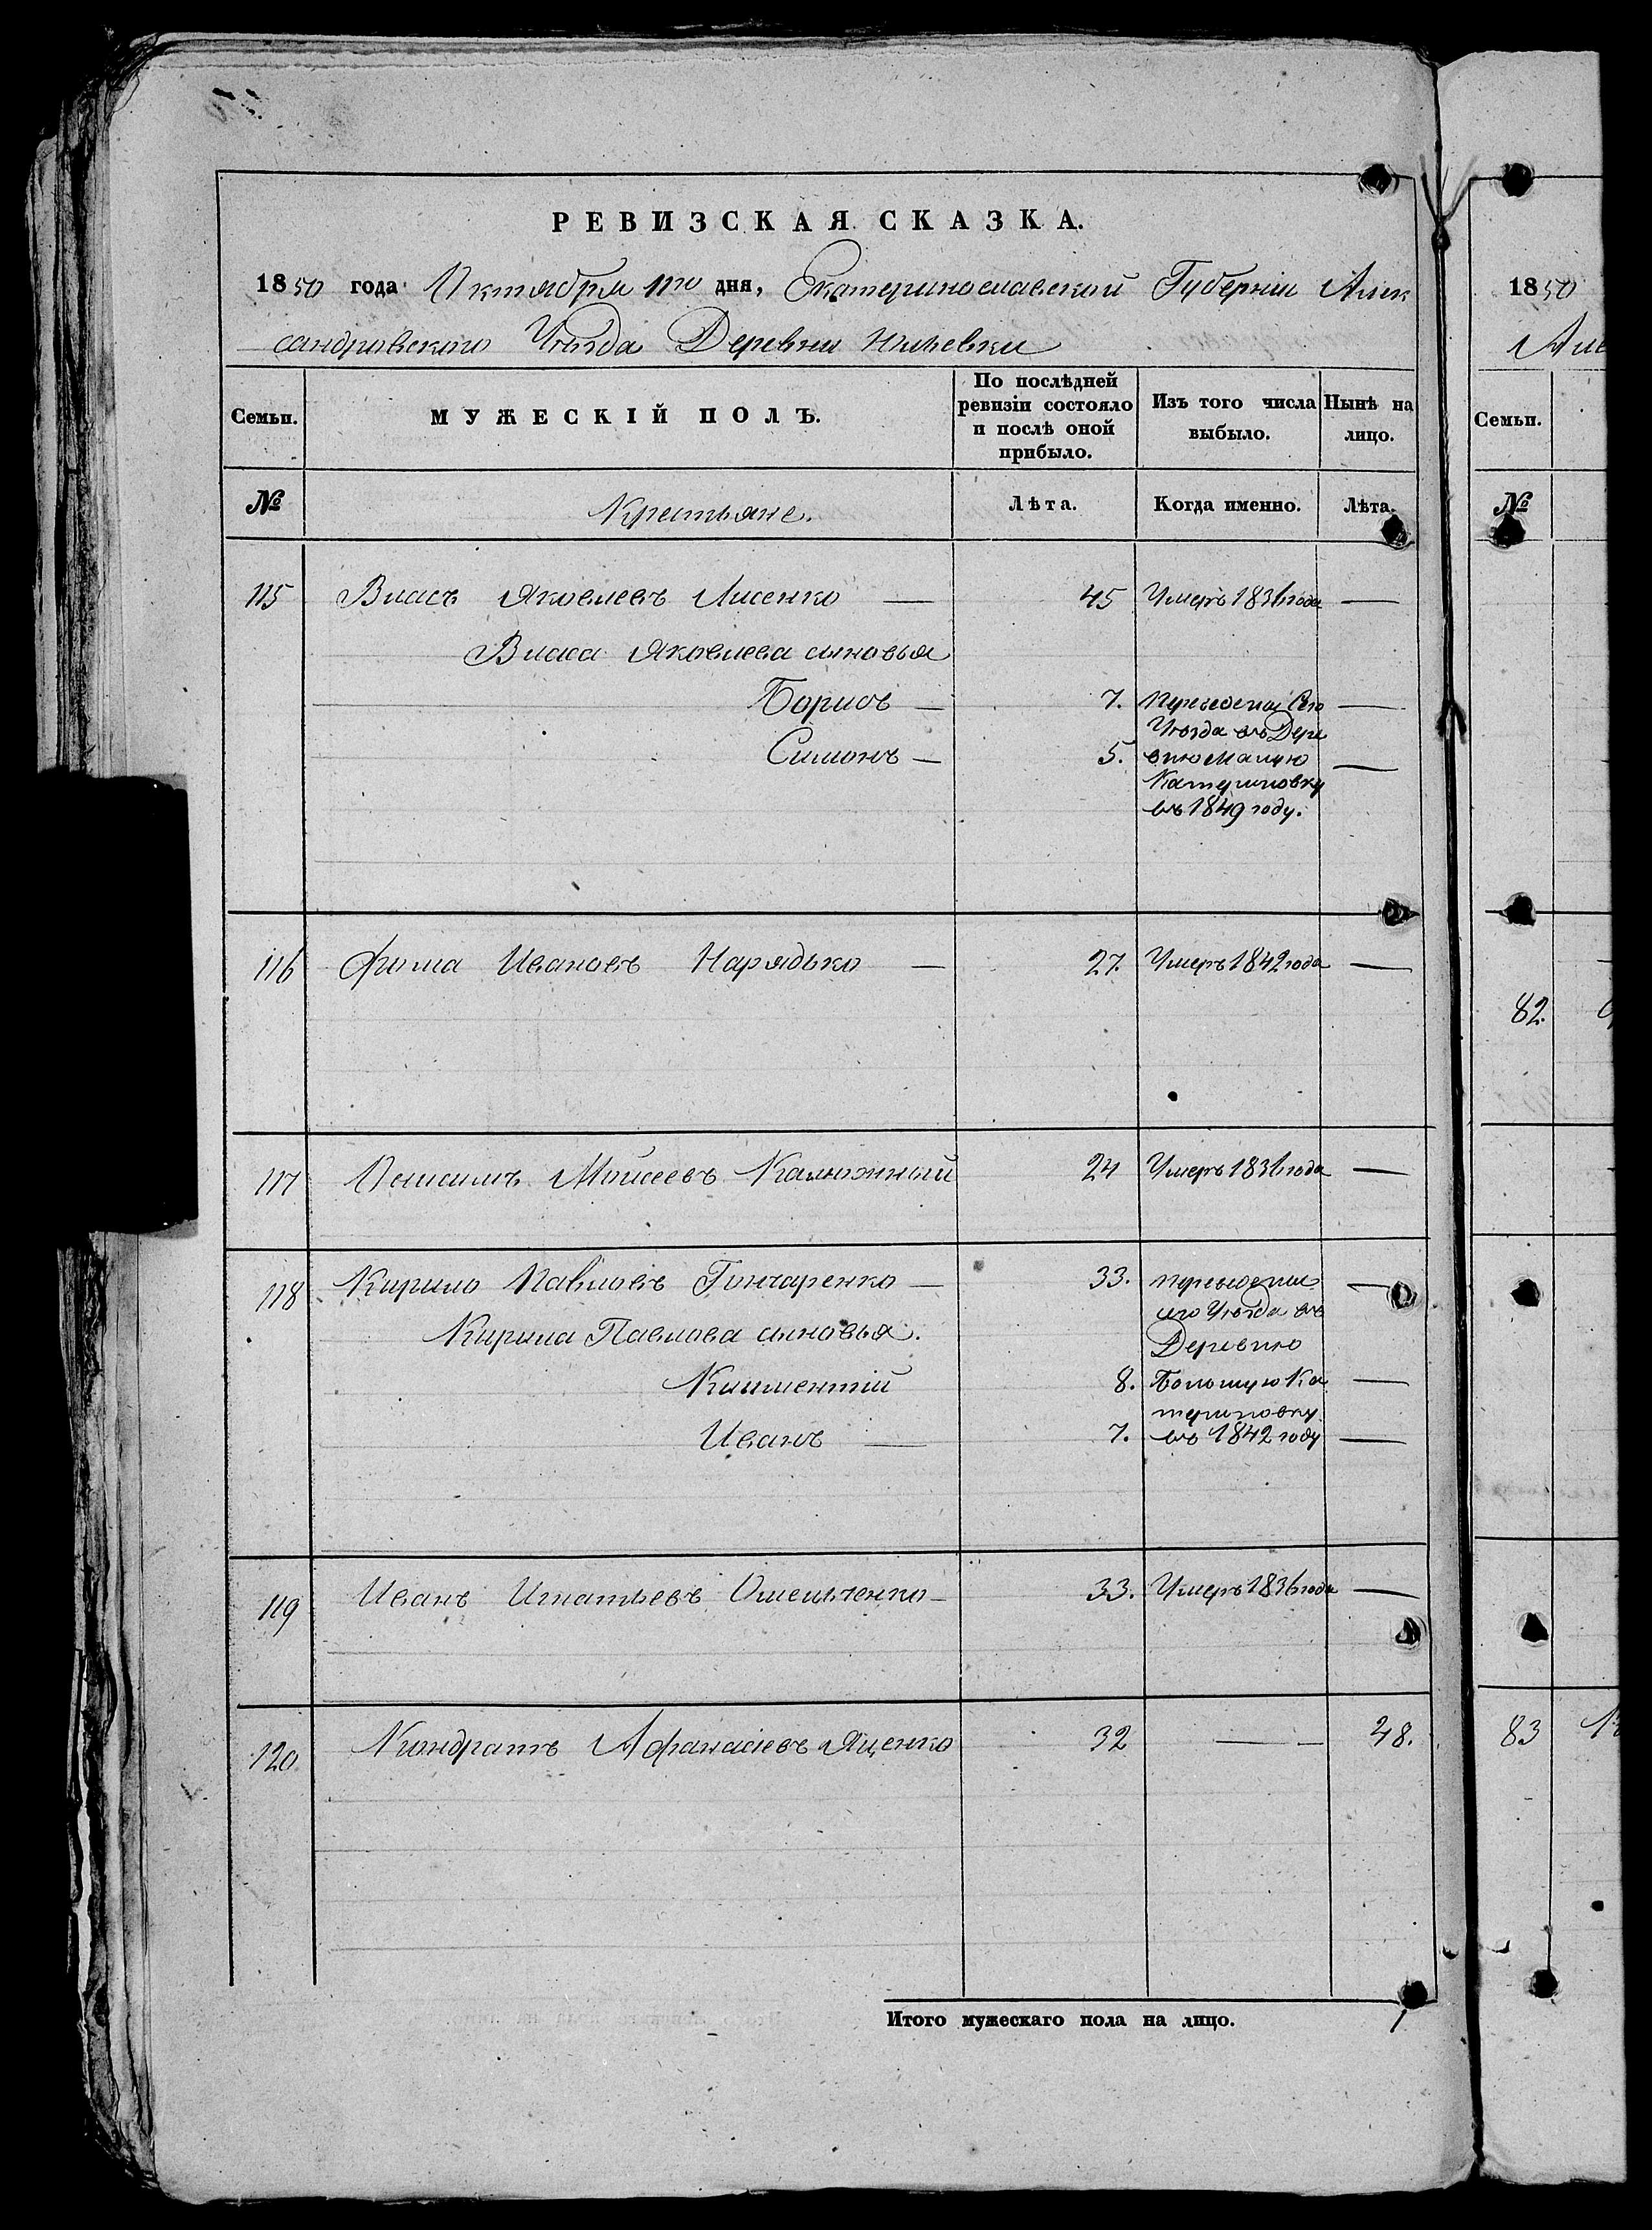 РЕВИЗСКАЯ СКАЗКА.
1850 года Октября 1го дня, Екатеринославской Губернiи Алек
сандровского Уѣзда Деревни
Семьи. МУЖЕСКIЙ ПОЛЪ. По послѣдней ревизiи состояло и послѣ оной прибыло. Изъ того числа выбыло. Нынѣ на лицо.
№ Крестьяне. Лѣта. Когда именно. Лѣта.
115 Власъ Яковлевъ Лисенко — 45 Умеръ 1836 года —
Власа Яковлева сыновья
Борисъ — 7. Переведены Сего —
Уѣзда въ Дере
Симонъ — 5. вню Малую —
Катериновку
въ 1849 году.
116 Фома Ивановъ Нарядько — 27. Умеръ 1842 года —
117 Онисимъ Моисеевъ Калюжный 24 Умеръ 1836 года —
118 Кирило Павловъ Гончаренко — 33. переведены —
сего Уѣзда въ
Кирила Павлова сыновья. Деревню
Климентiй 8. Большую Ка —
териновку
Иванъ — 7. въ 1842 году —
119 Иванъ Игнатьевъ Омельченко — 33. Умеръ 1836 года —
120 Кондратъ Афанасiевъ Яценко 32 — — 48.
Итого мужескаго пола на лицо. 1
1850
Але
Семьи.
№
82.
83